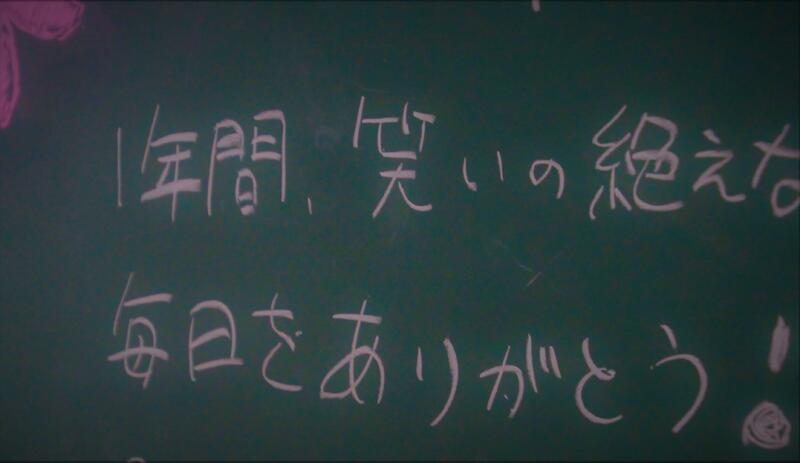 1年間、笑いの絶えな
毎日をありがとう!